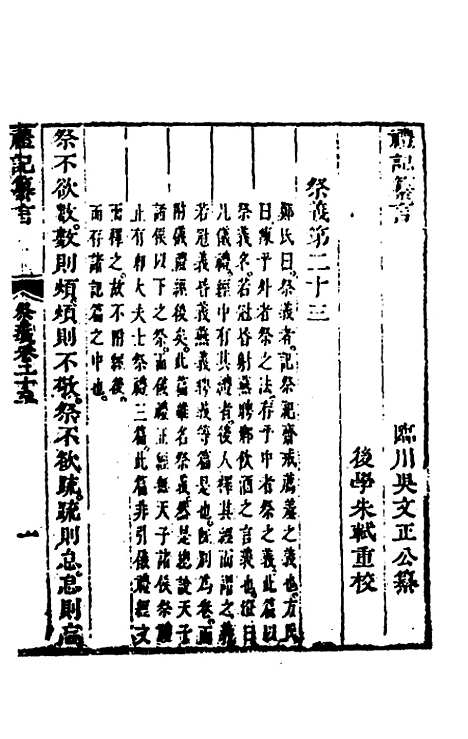 禮記纂言
臨川吳文正公纂
後學朱軾重校
祭義第二十三
鄭氏曰祭義者記祭祀齋戒薦羞之義也方氏
曰陳乎外者祭之法存乎中者祭之義此篇以
祭義名若冠昏射燕聘鄉飲酒之言義也澄曰
凡儀禮經中有其禮者後人釋其經而謂之義
若冠義昏義聘義等篇是也旣別爲卷而
附儀禮經後矣此篇雖名祭義然是總說天子
諸侯以下之祭而儀禮正經無天子諸侯祭禮
止有卿大夫士祭禮三篇此篇非引儀禮經文
而釋之故不附經後
而存諸記篇之中也
祭不欲數數則煩煩則不敬祭不欲疏疏則怠怠則忘
禮記纂言
祭義卷二十三
一